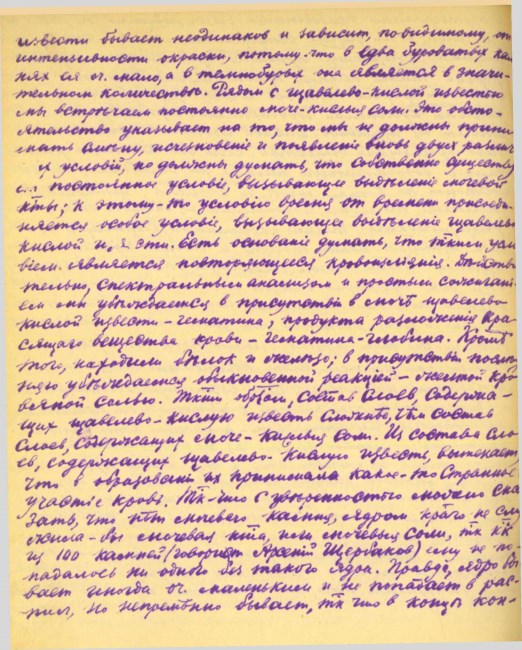 извести бываетъ неодинаков и зависит, по видимому, от
интенсивности окраски, потому-что в едва буроватых кам
нях ея оч. мало, а в темнобурых она является в значи-
тельном количестве. Рядом с щавелево-кислой известью
мы встречаем постоянно моче-кислыя соли. Это обсто-
ятельство указывает на то, что мы не должны прини
мать смену, исчезновенiе и появленiе вновь двух
условiй, но должны думать, что собственно существу
постоянное условiе, вызывающее выделенiе мочевой
кты; к этому-то условiю время от времени присоеди-
няется особое условiе, вызывающее выделенiе щавелево
кислой Есть основанiе думать, что тким усло
вiем является повторяющееся кровоизлiянiе. Дѣйстви
тельно, спектральным анализом и простым сожиганi-
ем мы убѣждаемся в присутствiи в щавелево-
кислой извести - гематина, продукта разложенiя кра
сящаго вещества крови - гематина-глобина. Кромѣ
того, находили бѣлок и желѣзо; в присутствiи
убѣждаемся обыкновенной реакцiей - желтой кро
вяной солью. Тким обрзом, состав слоев, содержа-
щих щавелево-кислую известь сложнѣе, чѣм состав
слоев, содержащих моче-кислыя соли. Из состава сло-
ев, содержащих щавелево-кислую известь, вытекает,
что в образованiи их принимала какое-то странное
участiе кровь. Тк-что с увѣренностью можно ска
зать, что нѣт мочевого камня, ядром ктраго не слу
жила-бы мочевая кта, или мочевыя соли, тк кк
из 100 камней (говорит Арсенiй Щербаков) ему не по-
падалось ни одного без такого ядра. Правда, ядро бы
вает иногда оч. маленьким и не попадает в рас-
пил, но непремѣнно бывает, тк что в концѣ кон-